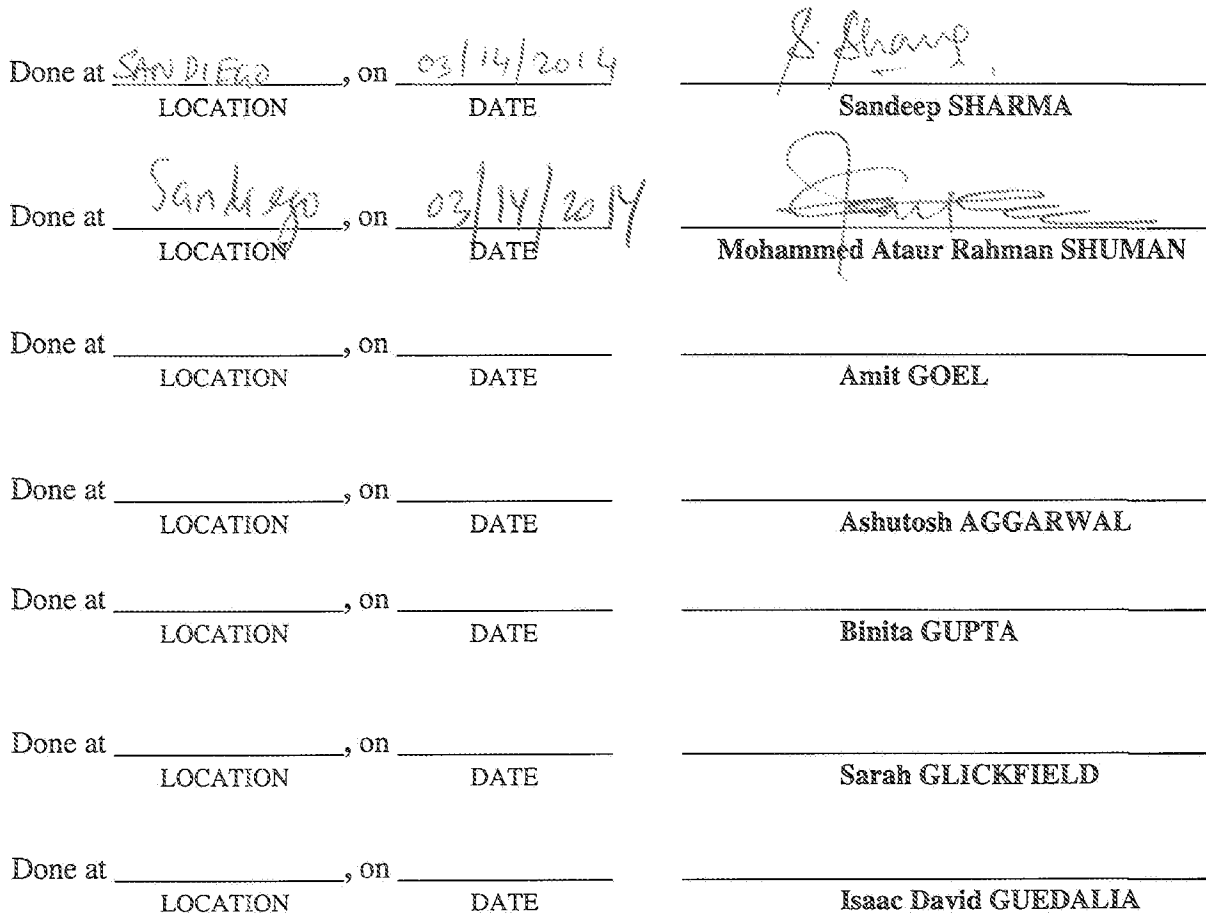 Done at SAN DIEGO, on 03/14/2014 S. Sharma
LOCATION DATE Sandeep SHARMA
Done at San diego, on 03/14/2014
LOCATION DATE Mohammed Ataur Rahman SHUMAN
Done at , on
LOCATION DATE Amit GOEL
Done at , on
LOCATION DATE Ashutosh AGGARWAL
Done at , on
LOCATION DATE Binita GUPTA
Done at , on
LOCATION DATE Sarah GLICKFIELD
Done at , on
LOCATION DATE Isaac David GUEDALIA